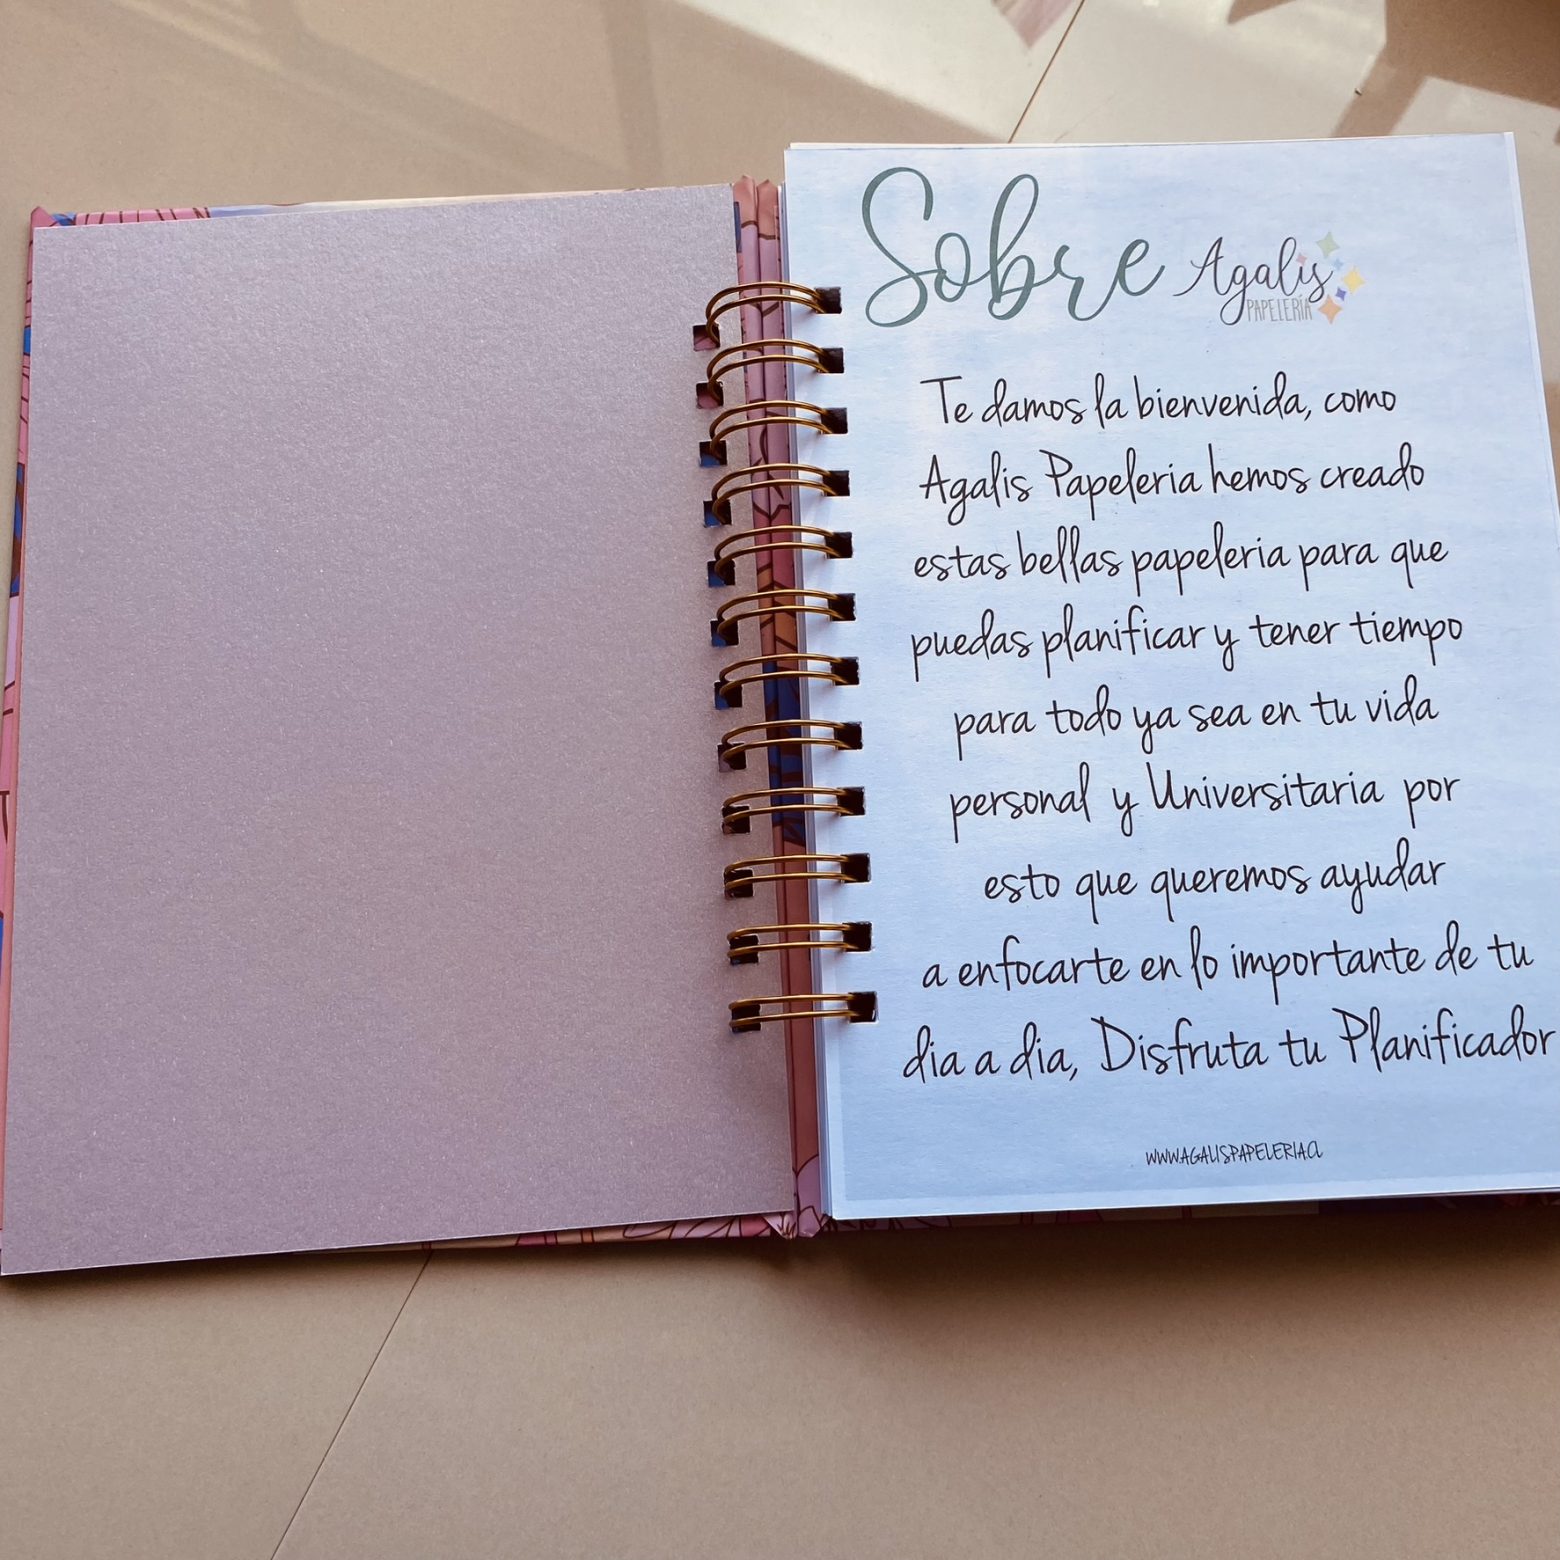 Sobre Agalis
PAPELERÍA
Te damos la bienvenida, como
Agalis Papeleria hemos creado
estas bellas papeleria para que
puedas planificar y tener tiempo
para todo ya sea en tu vida
personal y Universitaria por
esto que queremos ayudar
a enfocarte en lo importante de tu
dia a dia, Disfruta tu Planificador
WWW.AGALISPAPELERIA.CL